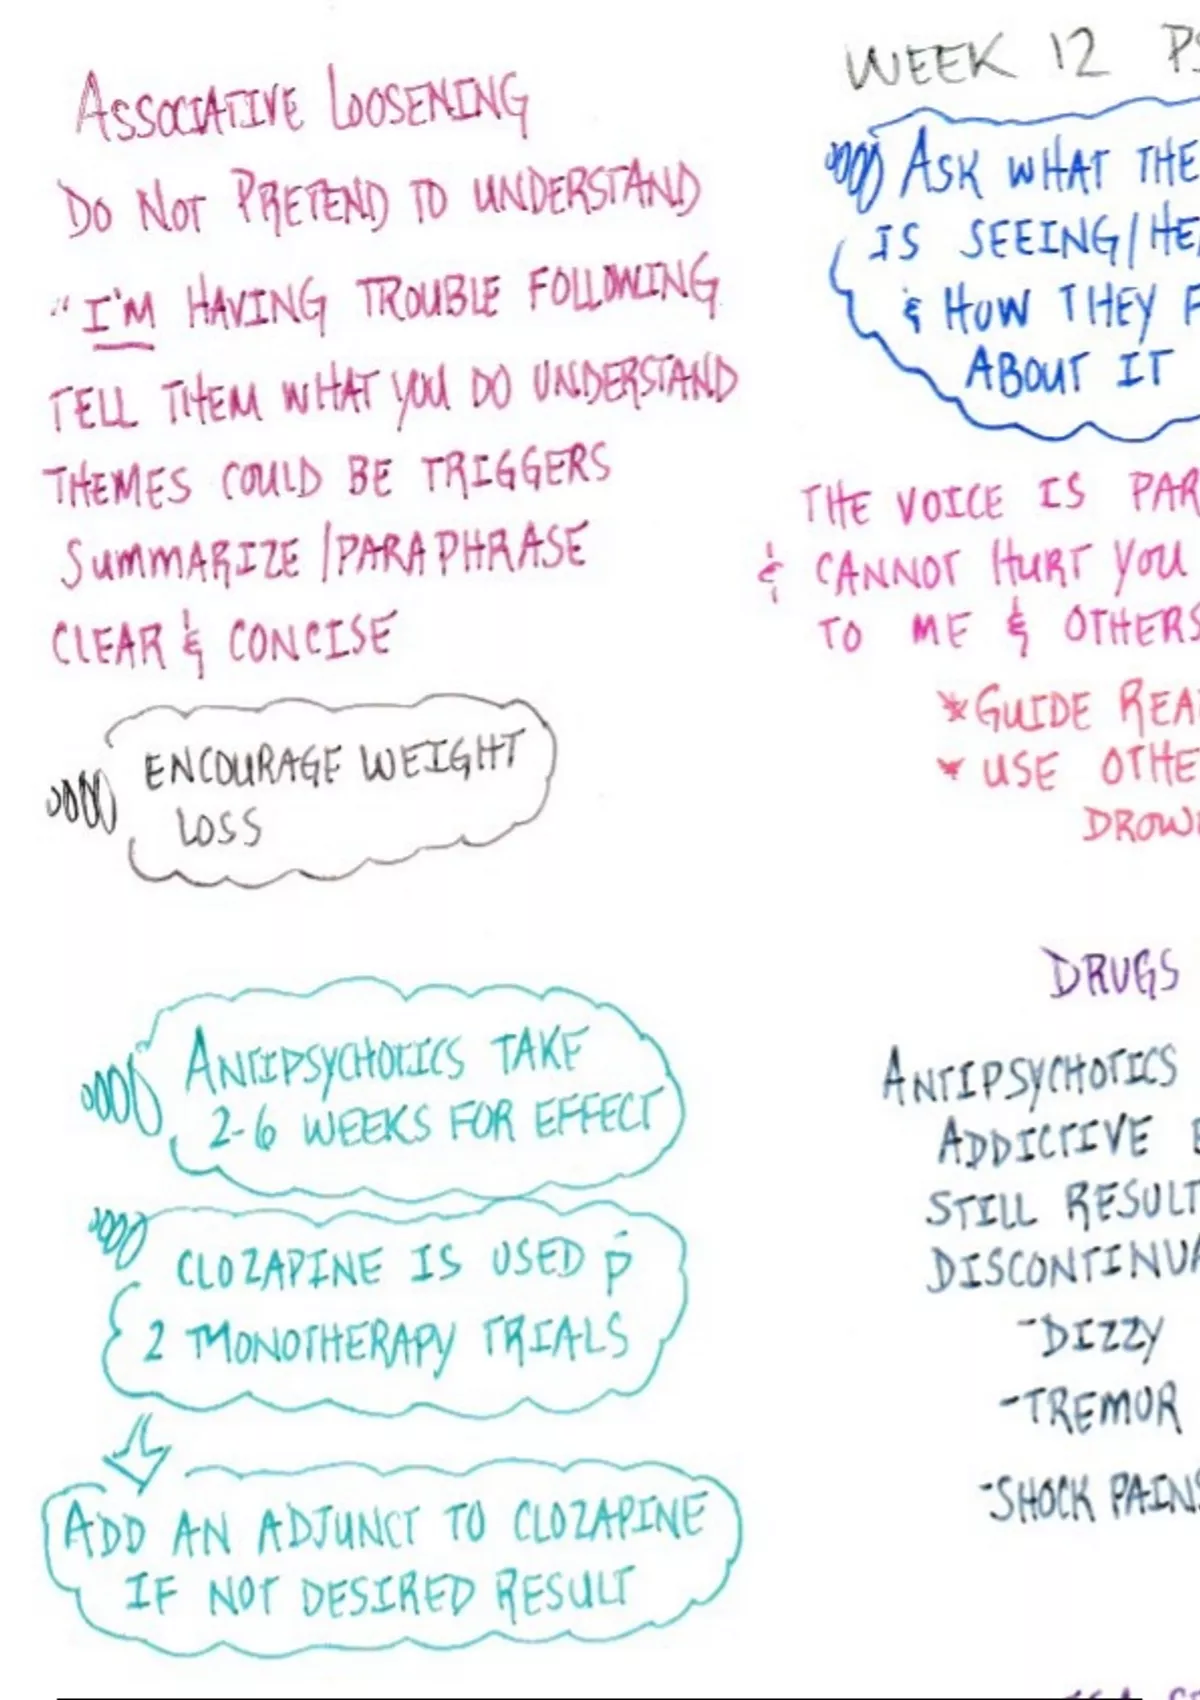 ASSOCIATIVE LOOSENING
DO NOT PRETEND TO UNDERSTAND
"I'M HAVING TROUBLE FOLLOWING
TELL THEM WHAT YOU DO UNDERSTAND
THEMES COULD BE TRIGGERS
SUMMARIZE/PARAPHRASE
CLEAR & CONCISE
ENCOURAGE WEIGHT
LOSS
ANTIPSYCHOTICS TAKE
2-6 WEEKS FOR EFFECT
CLOZAPINE IS USED p̄
2 MONOTHERAPY TRIALS
ADD AN ADJUNCT TO CLOZAPINE
IF NOT DESIRED RESULT
WEEK 12 PS
ASK WHAT THE
IS SEEING/HE
& HOW THEY F
ABOUT IT
THE VOICE IS PAR
& CANNOT HURT YOU
TO ME & OTHERS
*GUIDE REA
*USE OTHE
DROW
DRUGS
ANTIPSYCHOTICS
ADDICTIVE
STILL RESULT
DISCONTINUA
-DIZZY
-TREMOR
-SHOCK PAINS